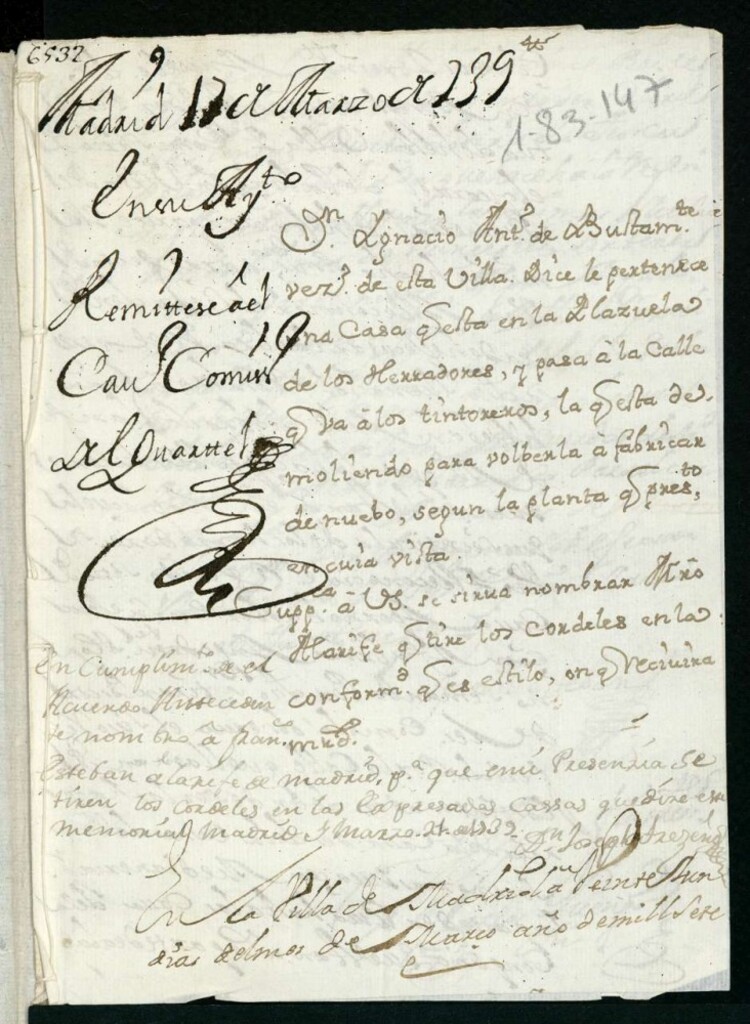 6532
Madrid 17 de Marzo de 739
1-83-147
En su Ayto
Remittese a el
Cavº Comisº
del Quarttel
Dn. Ygnacio Antº. de Bustamte
vezº. de esta Villa. Dice le perteneze
una Casa q esta en la Plazuela
de los Herradores, y pasa à la Calle
q va à los tintoreros, la q esta de
moliendo para volberla à fabricar
de nuebo, segun la planta q presto,
en cuia vista.
Suppca. à VS. se sirva nombrar Mro
Alarife q tire los cordeles en la
conformd q es estilo, en q Recivira
mrd.
En Cumplimto. de el
Acuerdo Antteceden
te nombro â Fran.
Esteban alarife de madrid, pa. que en mi Presenzia se
tiren los cordeles en las Expresadas Cassas que dize este
memorial Madrid y Marzo 21. de 1739
Dn Joseph
En la Villa de Madrid a Veinte y un
dias del mes de Marzo año de mill Sete